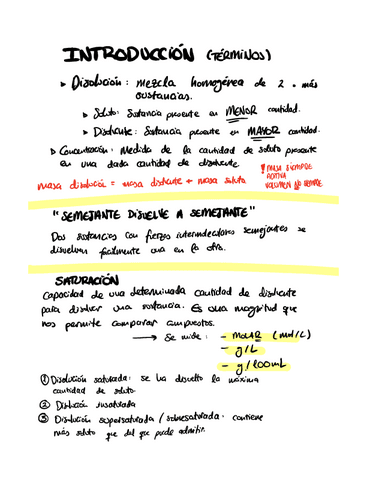 INTRODUCCIÓN (TÉRMINOS)
▸ Disolución: mezcla homogénea de 2 o más
sustancias.
▸ Soluto: Sustancia presente en MENOR cantidad.
▸ Disolvente: Sustancia presente en MAYOR cantidad.
▸ Concentración: Medida de la cantidad de soluto presente
en una dada cantidad de disolvente
masa disolución = masa disolvente + masa soluto
! MASA SIEMPRE
ADITIVA
VOLUMEN NO SIEMPRE
"SEMEJANTE DISUELVE A SEMEJANTE"
Dos sustancias con fuerzas intermoleculares semejantes se
disuelven fácilmente una en la otra.
SATURACIÓN
Capacidad de una determinada cantidad de disolvente
para disolver una sustancia. Es una magnitud que
nos permite comparar compuestos.
→ Se mide: - MOLAR (mol/L)
- g/L
- g/100mL
① Disolución saturada: se ha disuelto la máxima
cantidad de soluto.
② Disolución insaturada
③ Disolución supersaturada / sobresaturada: contiene
más soluto que del que puede admitir.